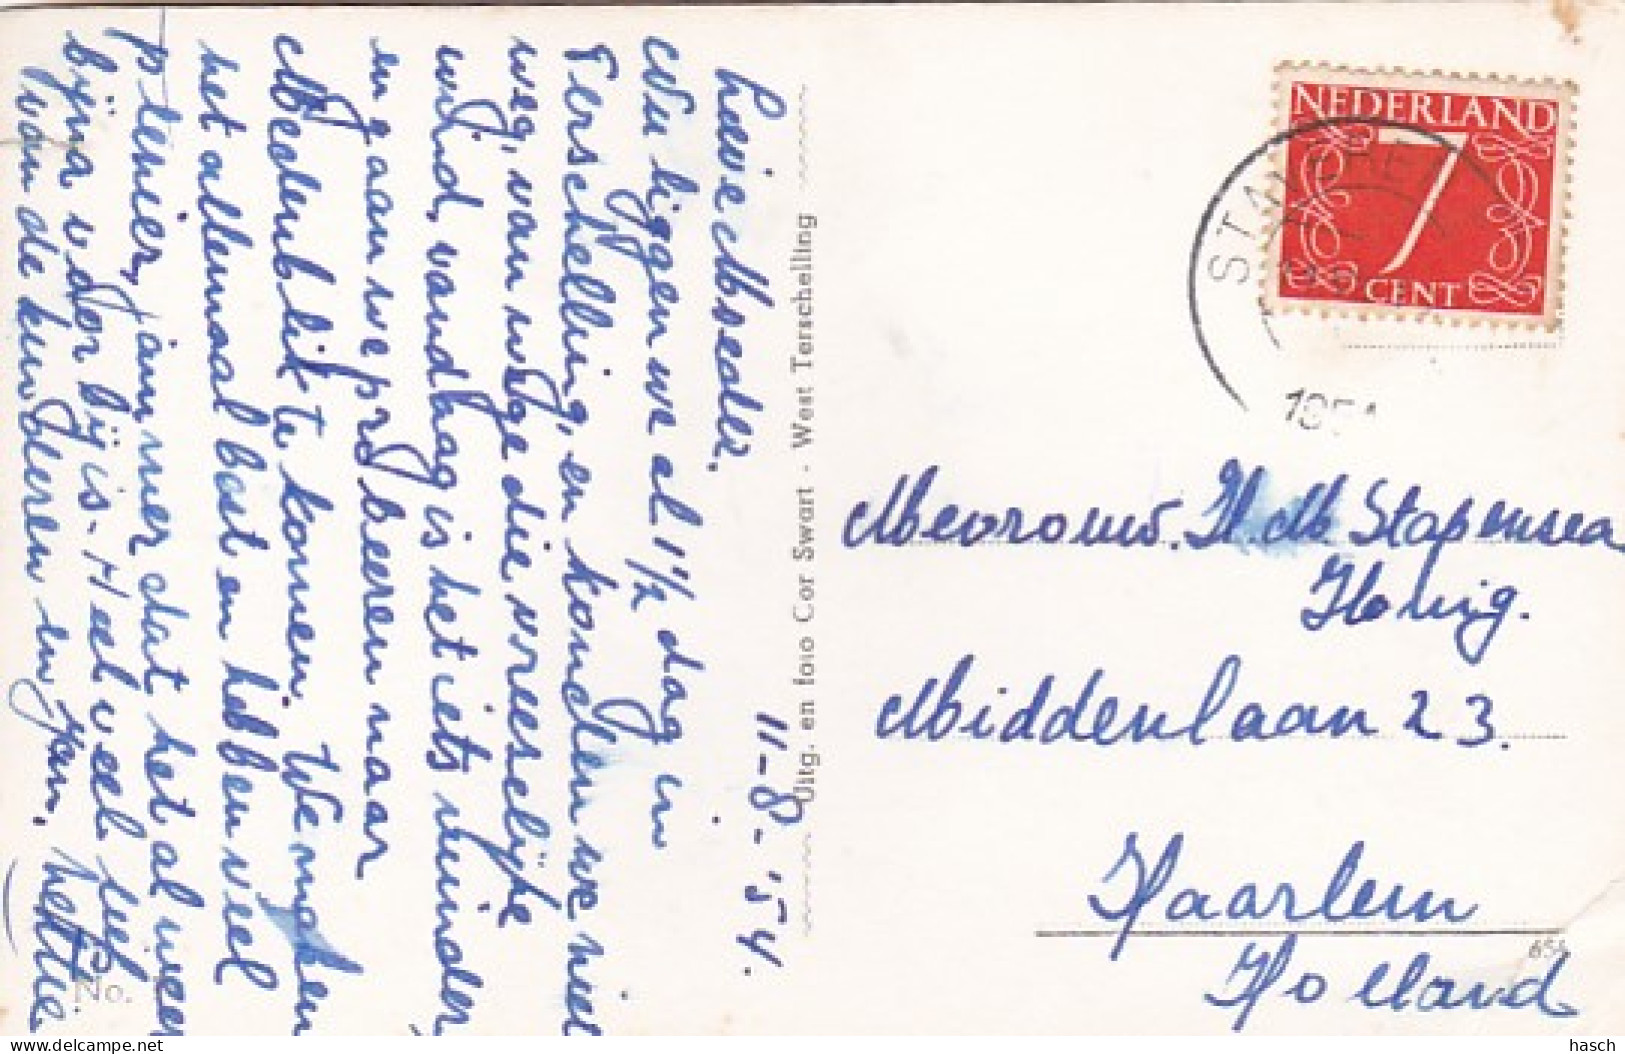 11-8-'54.
Lieve Moeder.
Nu liggen we al 1½ dag in
Terschelling, en konden we niet
weg, van wege die vreeselijke
wind, vandaag is het iets minder
en gaan we probeeren naar
Medemblik te komen. We maken
het allemaal best en hebben veel
plezier, jammer dat het al weer
bijna voorbij is. Heel veel liefs
van de kinderen en Jan. Nettie
No.
Uitg. en foto Cor Swart - West Terschelling
NEDERLAND
7
CENT
STAVEREN
1954
Mevrouw. H. M. Stapensea
Honig.
Middenlaan 23.
Haarlem
Holland
delcampe.net
hasch